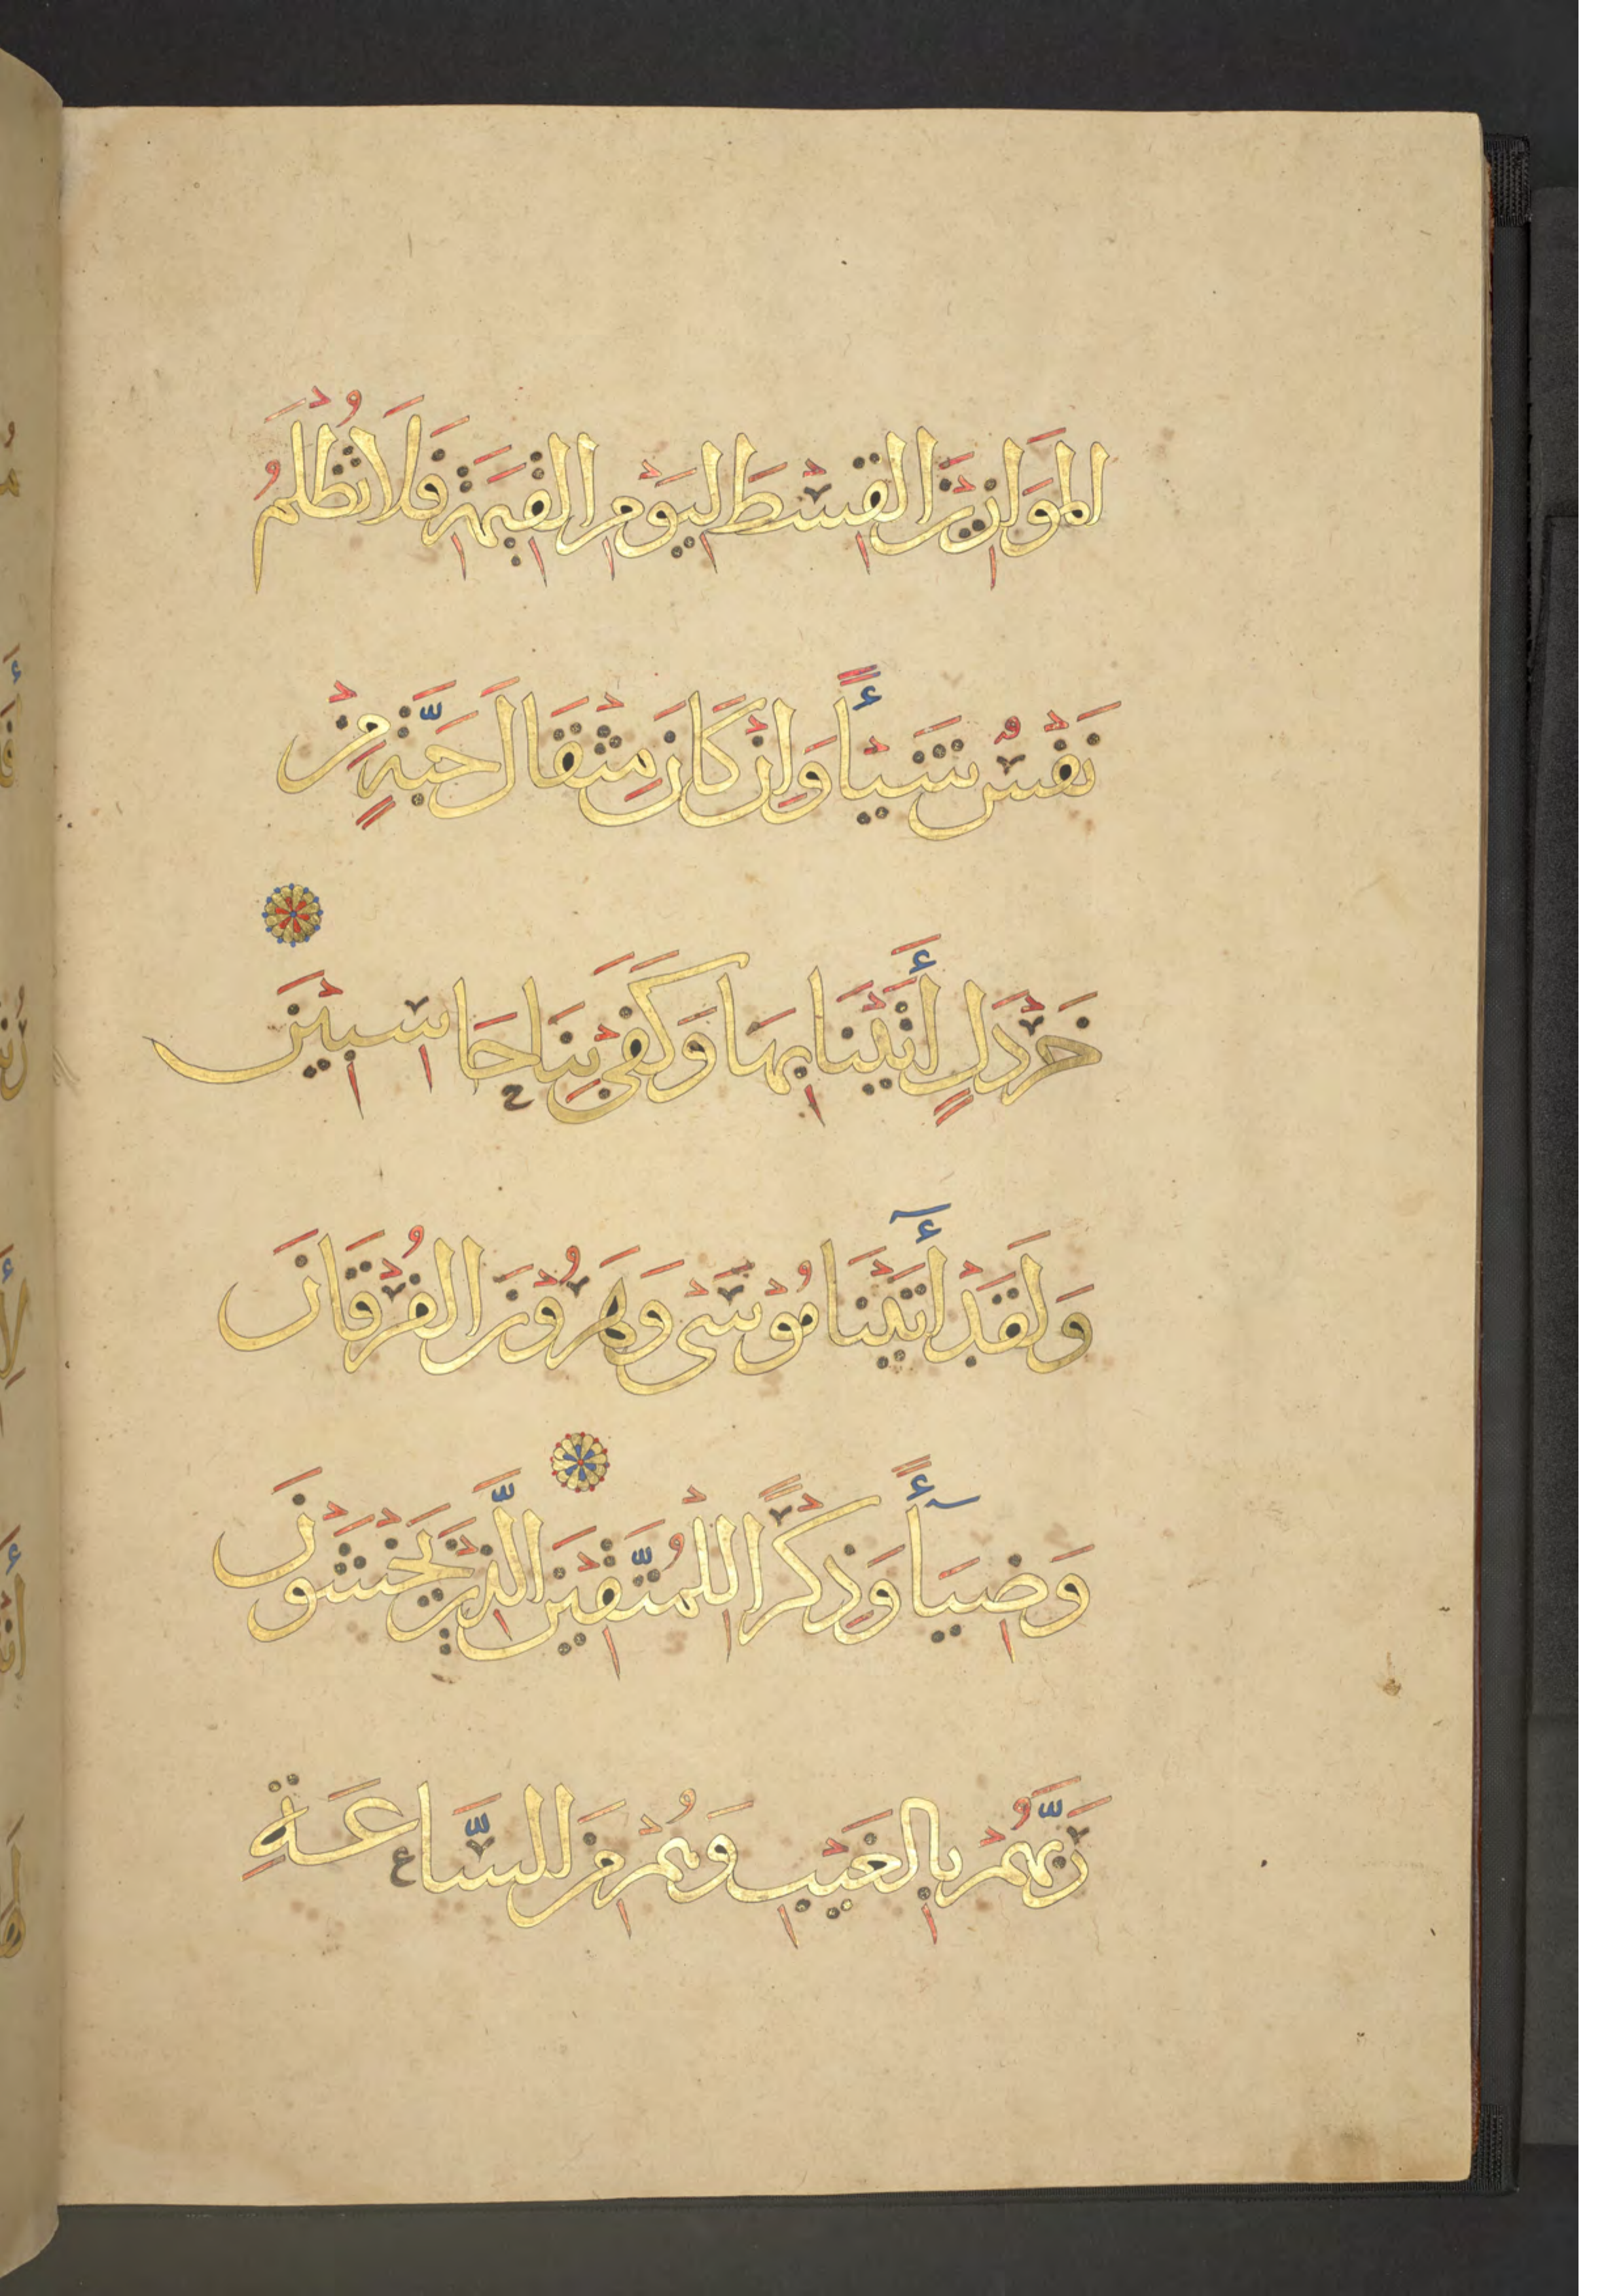 المَوَازِيْنَ القِسْطَ لِيَوْمِ القِيٰمَةِ فَلَا تُظْلَمُ
نَفْسٌ شَيْـًٔا وَاِنْ كَانَ مِثْقَالَ حَبَّةٍ مِنْ
خَرْدَلٍ أَتَيْنَا بِهَا وَكَفَى بِنَا حَاسِبِيْنَ
وَلَقَدْ أٓتَيْنَا مُوْسَى وَهَرُوْنَ الفُرْقَانَ
وَضِيَآءً وَذِكْرًا لِلْمُتَّقِيْنَ الَّذِيْنَ يَخْشَوْنَ
رَبَّهُمْ بِالغَيْبِ وَهُمْ مِنَ السَّاعَةِ